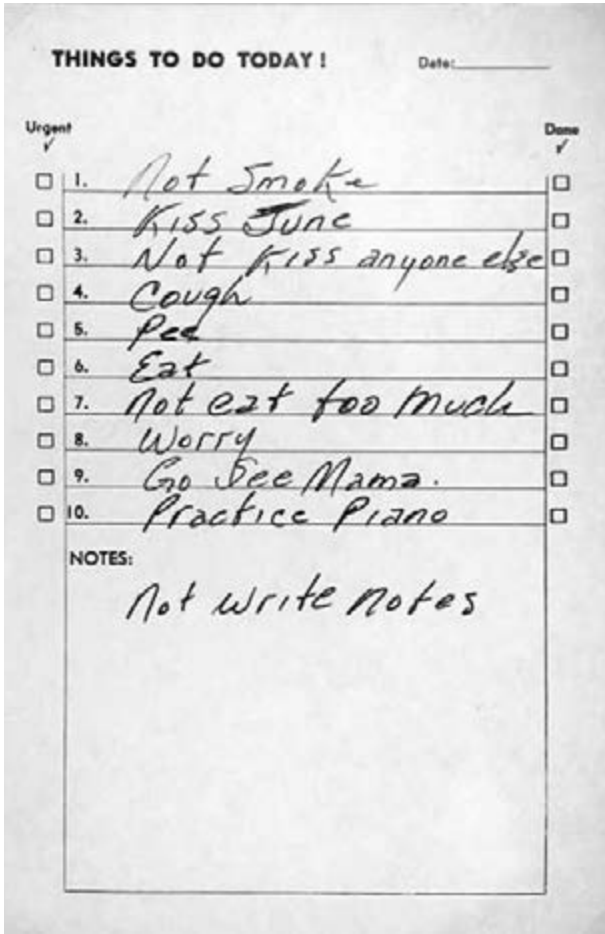 THINGS TO DO TODAY! Date:
Urgent Done
1. Not Smoke
2. Kiss June
3. Not Kiss anyone else
4. Cough
5. Pee
6. Eat
7. Not eat too much
8. Worry
9. Go See Mama.
10. Practice Piano
NOTES:
Not write notes